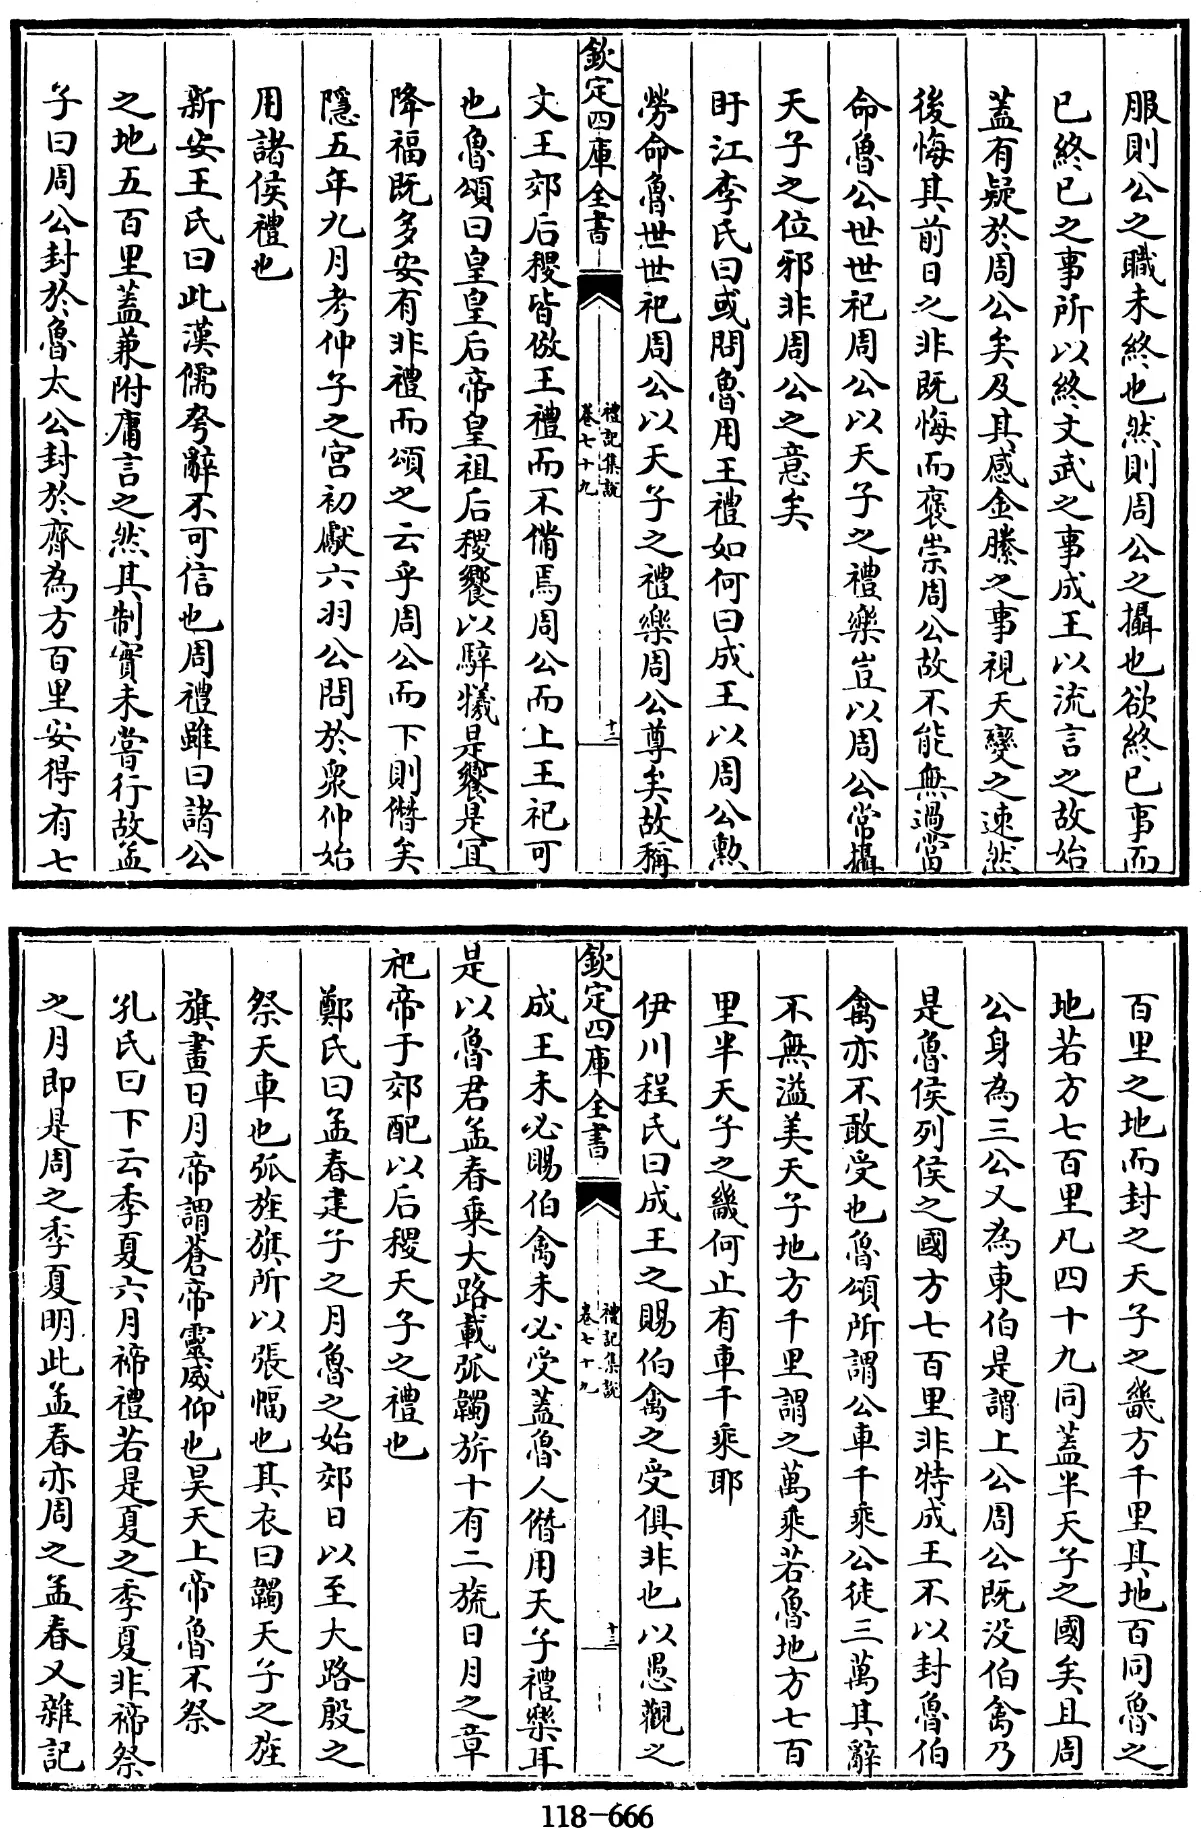 服則公之職未終也然則周公之攝也欲終已事而
已終已之事所以終文武之事成王以流言之故始
蓋有疑於周公矣及其感金縢之事視天變之速然
後悔其前日之非既悔而褒崇周公故不能無過當
命魯公世世祀周公以天子之禮樂豈以周公常攝
天子之位邪非周公之意矣
盱江李氏曰或問魯用王禮如何曰成王以周公勲
勞命魯世世祀周公以天子之禮樂周公尊矣故稱
欽定四庫全書
禮記集說
卷七十九
十二
文王郊后稷皆倣王禮而不備焉周公而上王祀可
也魯頌曰皇皇后帝皇祖后稷饗以騂犧是饗是宜
降福既多安有非禮而頌之云乎周公而下則僭矣
隱五年九月考仲子之宮初獻六羽公問於衆仲始
用諸侯禮也
新安王氏曰此漢儒夸辭不可信也周禮雖曰諸公
之地五百里蓋兼附庸言之然其制實未嘗行故孟
子曰周公封於魯太公封於齊為方百里安得有七
百里之地而封之天子之畿方千里其地百同魯之
地若方七百里凡四十九同蓋半天子之國矣且周
公身為三公又為東伯是謂上公周公既没伯禽乃
是魯侯列侯之國方七百里非特成王不以封魯伯
禽亦不敢受也魯頌所謂公車千乘公徒三萬其辭
不無溢美天子地方千里謂之萬乘若魯地方七百
里半天子之畿何止有車千乘耶
伊川程氏曰成王之賜伯禽之受俱非也以愚觀之
欽定四庫全書
禮記集說
卷七十九
十三
成王未必賜伯禽未必受蓋魯人僭用天子禮樂耳
是以魯君孟春乘大路載弧韣旂十有二旒日月之章
祀帝于郊配以后稷天子之禮也
鄭氏曰孟春建子之月魯之始郊日以至大路殷之
祭天車也弧旌旗所以張幅也其衣曰韣天子之旌
旗畫日月帝謂蒼帝靈威仰也昊天上帝魯不祭
孔氏曰下云季夏六月禘禮若是夏之季夏非禘祭
之月即是周之季夏明此孟春亦周之孟春又雜記
118-666